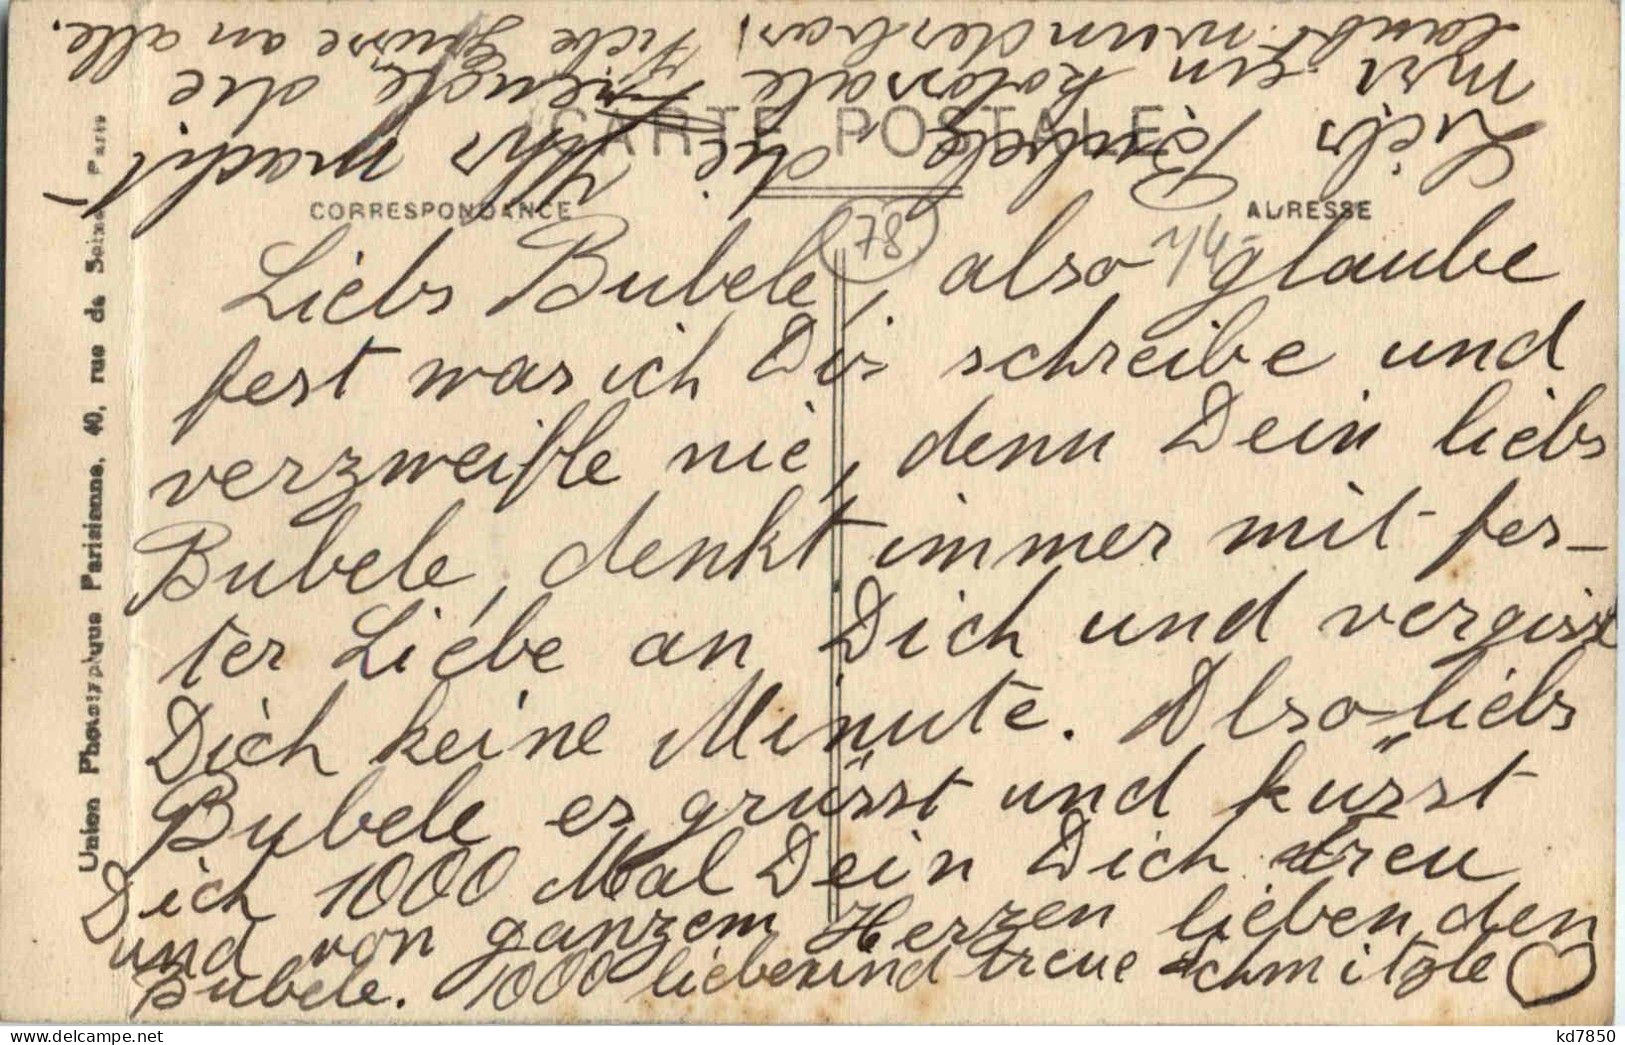 CARTE POSTALE
CORRESPONDANCE
ADRESSE
78
Liebs Bubele, also glaube
fest was ich Dir schreibe und
verzweifle nie, denn Dein liebs
Bubele, denkt immer mit fes-
ter Liebe an Dich und vergisst
Dich keine Minute. Also liebs
Bubele es grüsst und küsst
Dich 1000 Mal Dein Dich treu
und von ganzem Herzen liebenden
Bubele. 1000 liebe und treue Schmitzle
Liebs Bubele, die Uhr macht
mir ein kolossale Freude, die
lauft wunderbar. Viele Grüsse an alle.
Union Phototypique Parisienne, 40, rue de Seine, Paris
kd7850